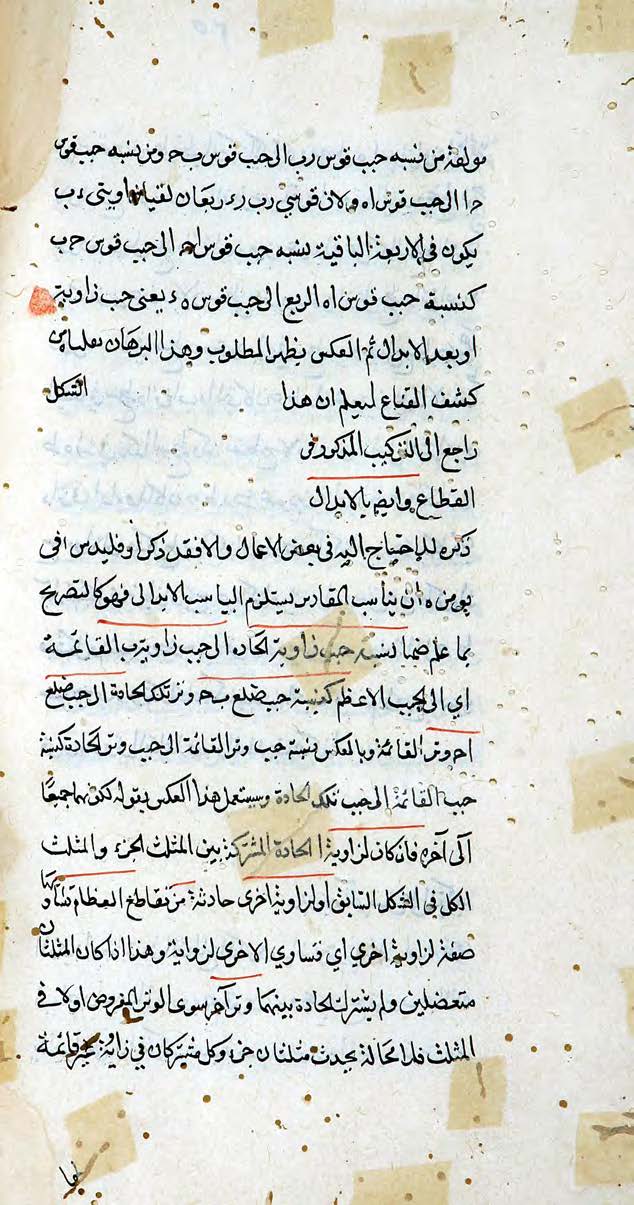 مولفة من نسبه جيب قوس رب الى جيب قوس ب ح ومن نسبه جيب قوس
ح ا الى جيب قوس اه ولان قوسي رب ر ربعان
يكون في الاربعة الباقية نسبه جيب قوس اح الى جيب قوس ح ب
كنسبة جيب قوس اه الربع الى جيب قوس ه ء يعنى جيب زاوية
او بعد الابدال ثم العكس يظهر المطلوب وهذا البرهان نقلناه من
كشف القناع ليعلم ان هذا الشكل
راجع الى التركيب المذكور في
القطاع وايضا بالابدال
ذكره للاحتياج اليه في بعض الاعمال والا فقد ذكر اوقليدس في
يو من ه ان تناسب المقادير يستلزم التناسب الابدالى فهو كالتصريح
بما علم ضمنا نسبة جيب زاوية الحاده الى جيب زاوية ب القائمة
اي الى الجيب الاعظم كنسبة جيب ضلع ب ح وتر تلك الحادة الى جيب ضلع
اح وتر القائمة وبالعكس نسبة جيب وتر القائمة الى جيب وتر الحادة كنسبة
جيب القائمة الى جيب تلك الحادة وسيستعمل هذا العكس بقوله لكنهما جميعا
الى آخره فان كان لزاوية الحادة المشتركة بين المثلث الجزء والمثلث
الكل في الشكل السابق او لزاوية اخرى حادثة من تقاطع العظام تساويها
صفة لزاوية اخرى اي تساوي الاخرى لزواية وهذا اذا كان المثلثان
ولم يشترك الحادة بينهما وتر آخر سوى الوتر المفروض اولا في
المثلث فلا محالة يحدث مثلثان جزء وكل مشتركان في زاوية غير قائمة